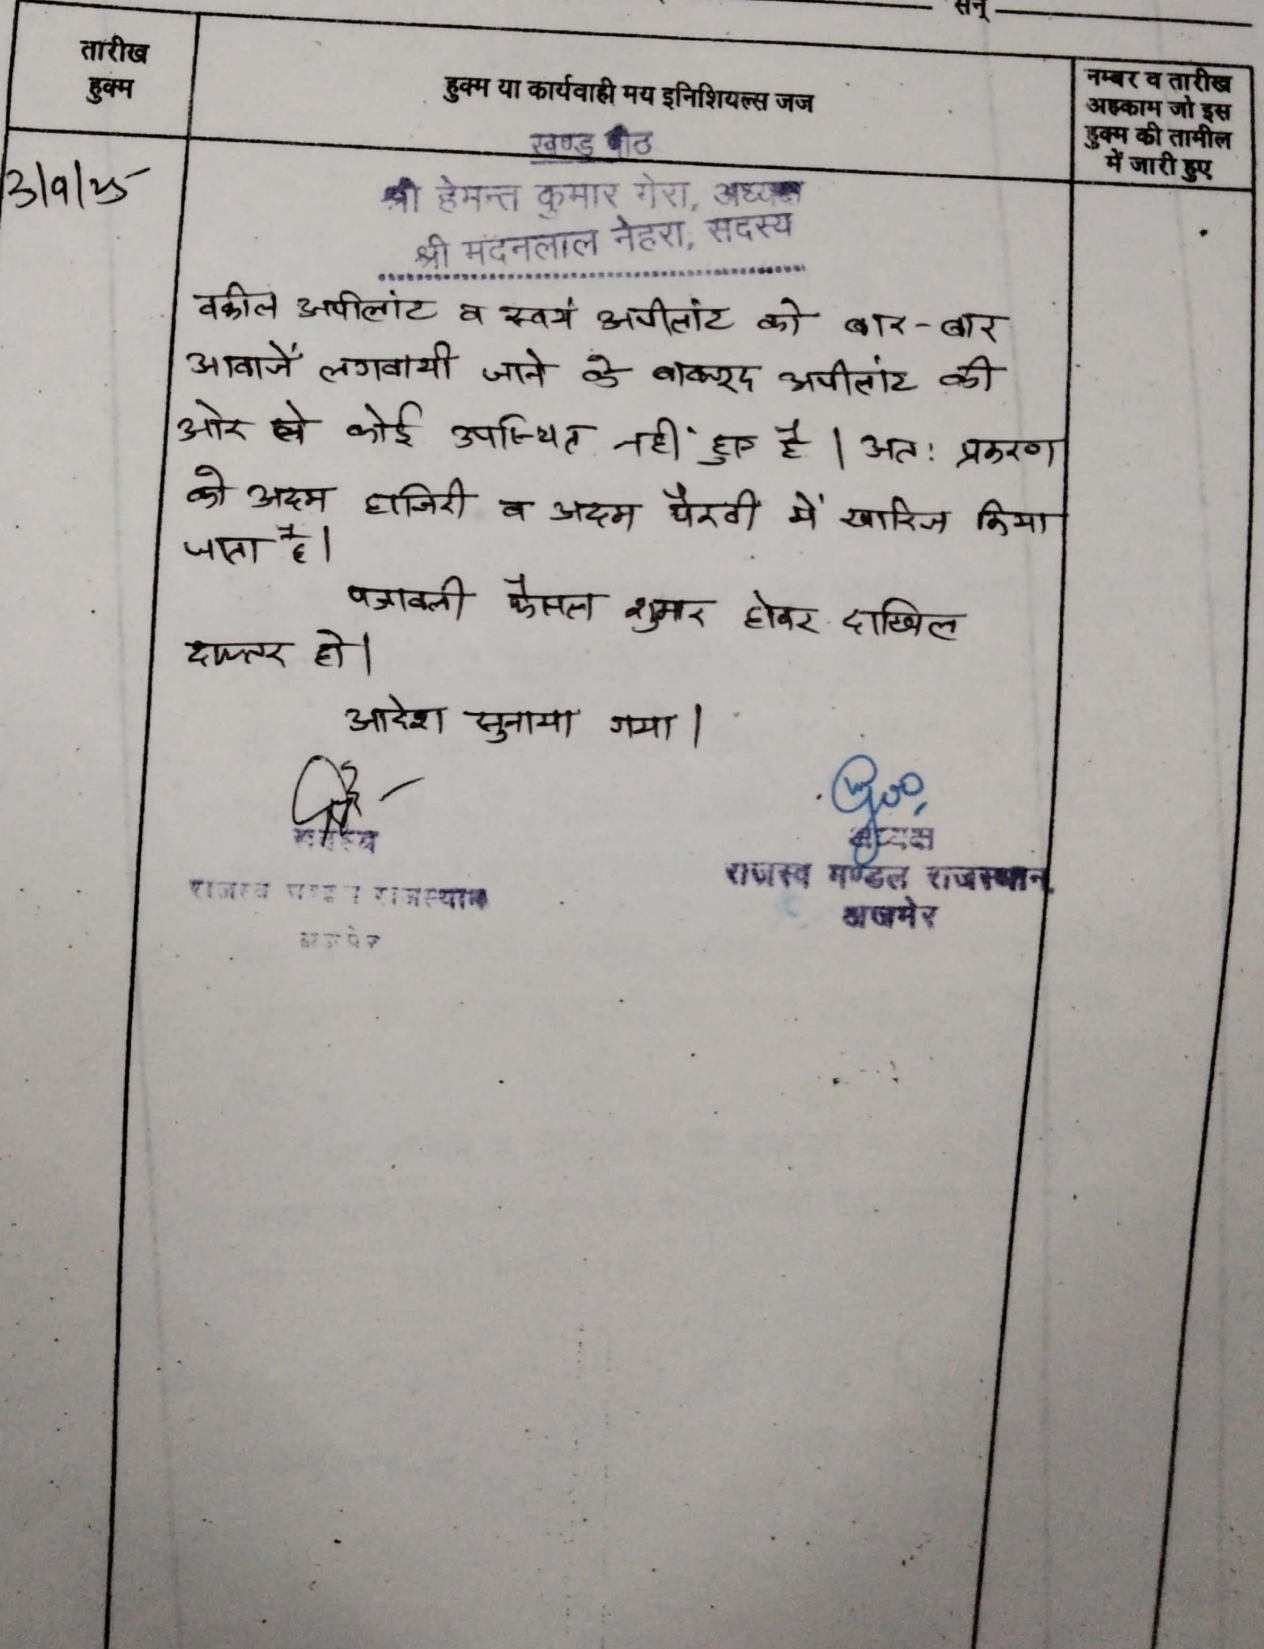 सन्
तारीख
हुक्म
हुक्म या कार्यवाही मय इनिशियल्स जज
नम्बर व तारीख
अहकाम जो इस
हुक्म की तामील
में जारी हुए
खण्ड पीठ
3/9/25
श्री हेमन्त कुमार गेरा, अध्यक्ष
श्री मदनलाल नेहरा, सदस्य
वकील अपीलांट व स्वयं अपीलांट को बार-बार
आवाजें लगवायी जाने के बावजूद अपीलांट की
ओर से कोई उपस्थित नहीं हुए है। अतः प्रकरण
को अदम हाजिरी व अदम पैरवी में खारिज किया
जाता है।
पत्रावली फैसल शुमार होकर दाखिल
दफ्तर हो।
आदेश सुनाया गया।
सदस्य
राजस्व मण्डल राजस्थान
अजमेर
अध्यक्ष
राजस्व मण्डल राजस्थान
अजमेर